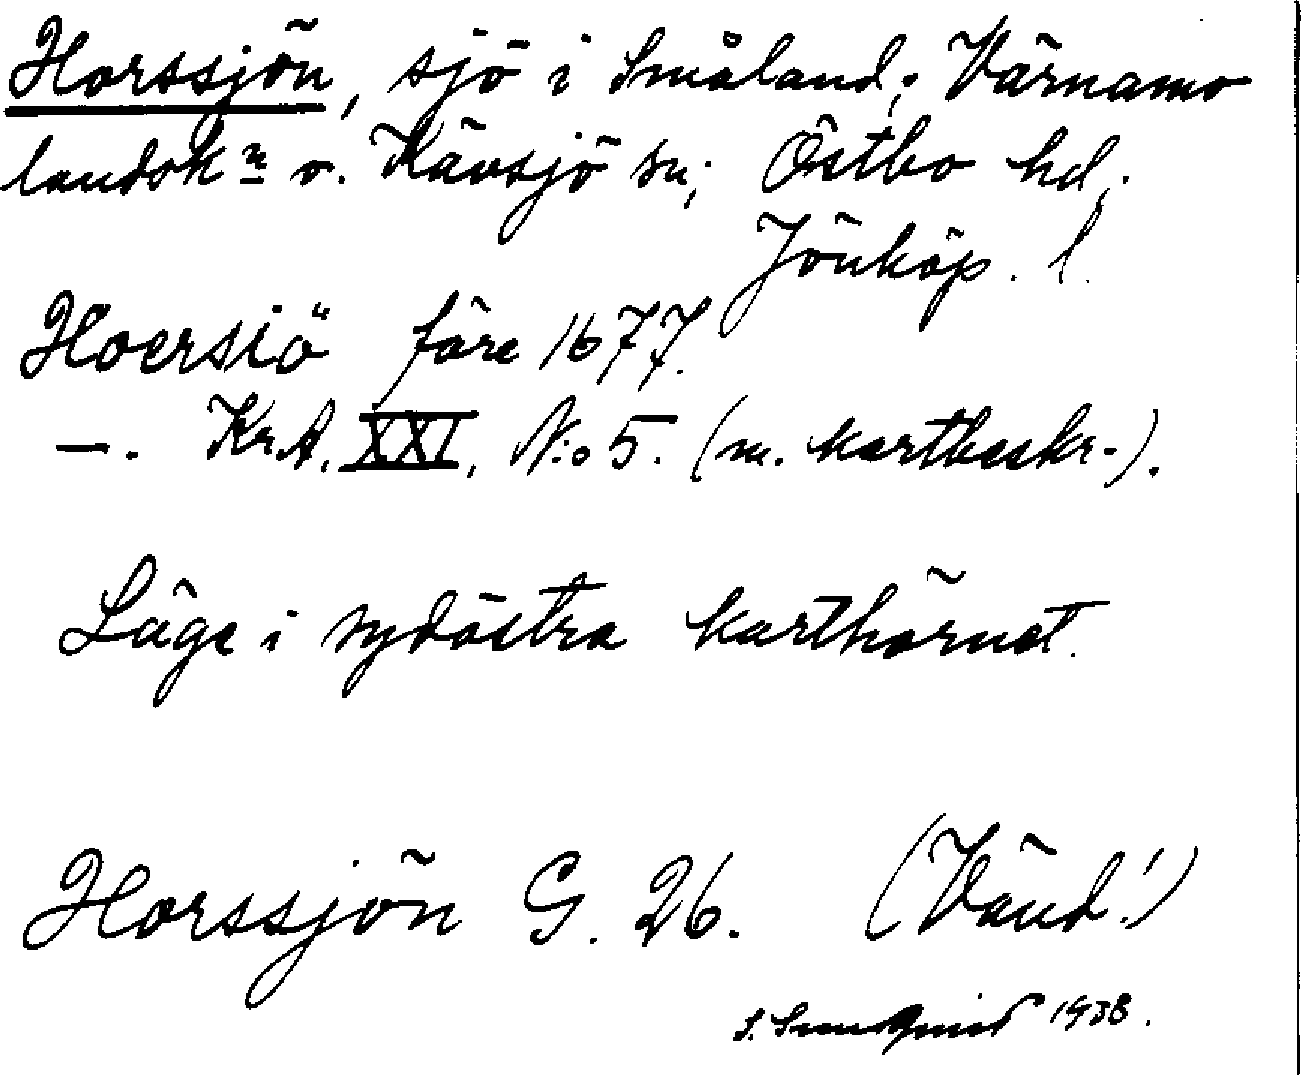 Horssjön, sjö i Småland; Värnamo
landskn o. Kävsjö sn; Östbo hd;
Jönköp. l.
Hoersiö före 1677.
—. Kr.A. XXI, N:o 5. (m. kartbeskr.).
Läge i sydöstra karthörnet.
Horssjön G. 26. (Vänd!)
S. Sundqvist 1938.